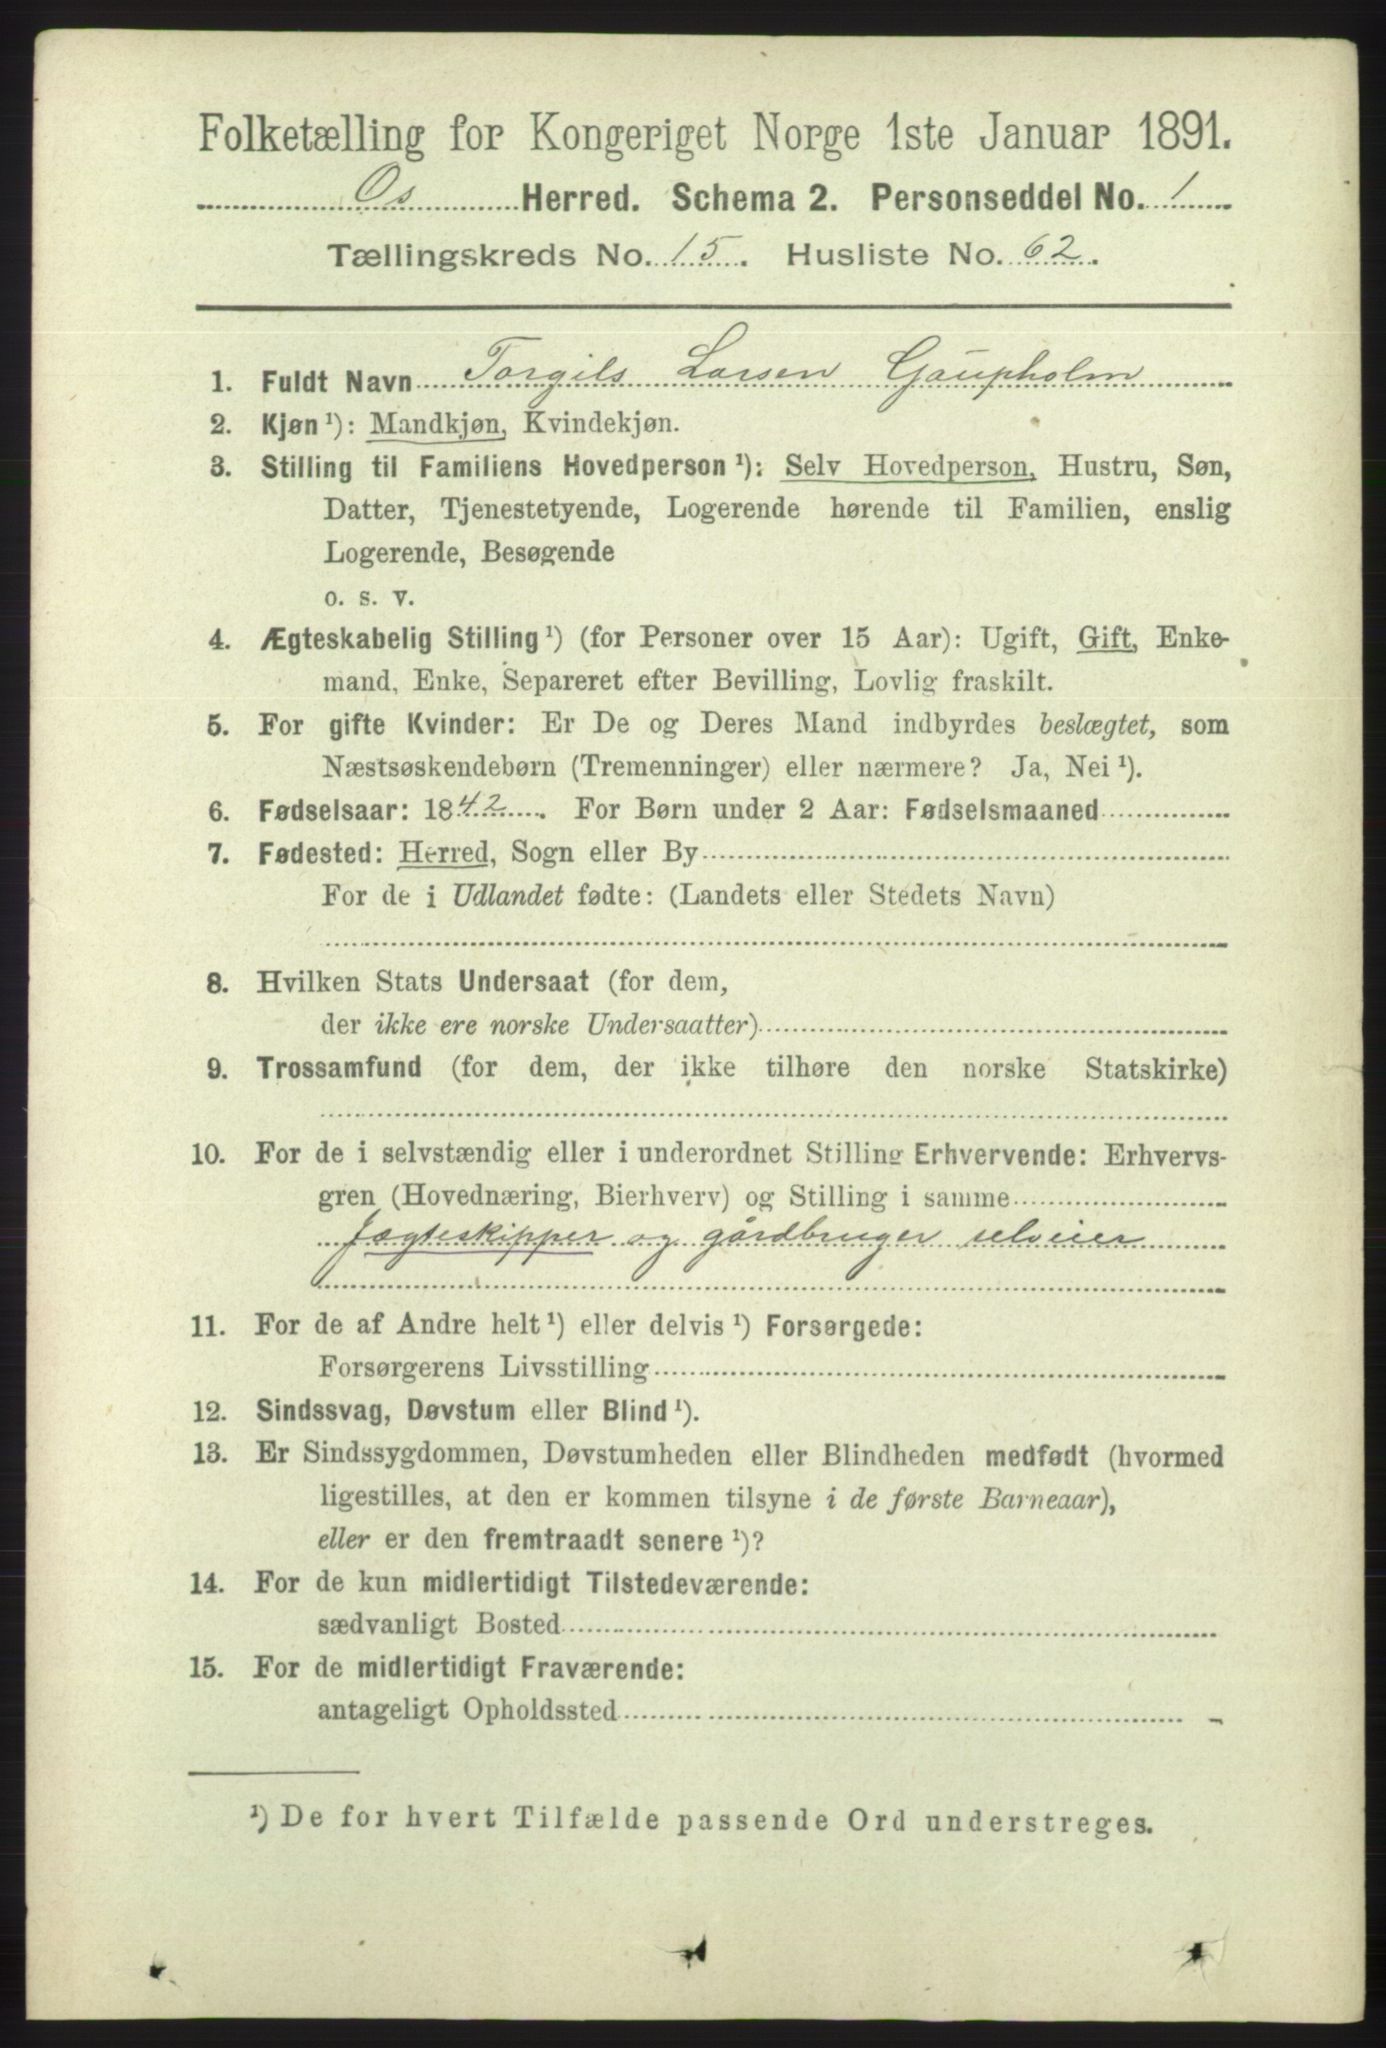 Folketælling for Kongeriget Norge 1ste Januar 1891.
Os Herred. Schema 2. Personseddel No. 1
Tællingskreds No. 15. Husliste No. 62.
1. Fuldt Navn Torgils Larsen Gaupholm
2. Kjøn ¹): Mandkjøn, Kvindekjøn.
3. Stilling til Familiens Hovedperson ¹): Selv Hovedperson, Hustru, Søn,
Datter, Tjenestetyende, Logerende hørende til Familien, enslig
Logerende, Besøgende
o. s. v.
4. Ægteskabelig Stilling ¹) (for Personer over 15 Aar): Ugift, Gift, Enke-
mand, Enke, Separeret efter Bevilling, Lovlig fraskilt.
5. For gifte Kvinder: Er De og Deres Mand indbyrdes beslægtet, som
Næstsøskendebørn (Tremenninger) eller nærmere? Ja, Nei ¹).
6. Fødselsaar: 1842. For Børn under 2 Aar: Fødselsmaaned
7. Fødested: Herred, Sogn eller By
For de i Udlandet fødte: (Landets eller Stedets Navn)
8. Hvilken Stats Undersaat (for dem,
der ikke ere norske Undersaatter)
9. Trossamfund (for dem, der ikke tilhøre den norske Statskirke)
10. For de i selvstændig eller i underordnet Stilling Erhvervende: Erhvervs-
gren (Hovednæring, Bierhverv) og Stilling i samme
Jægteskipper og gårdbruger selveier
11. For de af Andre helt ¹) eller delvis ¹) Forsørgede:
Forsørgerens Livsstilling
12. Sindssvag, Døvstum eller Blind ¹).
13. Er Sindssygdommen, Døvstumheden eller Blindheden medfødt (hvormed
ligestilles, at den er kommen tilsyne i de første Barneaar),
eller er den fremtraadt senere ¹)?
14. For de kun midlertidigt Tilstedeværende:
sædvanligt Bosted
15. For de midlertidigt Fraværende:
antageligt Opholdssted
¹) De for hvert Tilfælde passende Ord understreges.